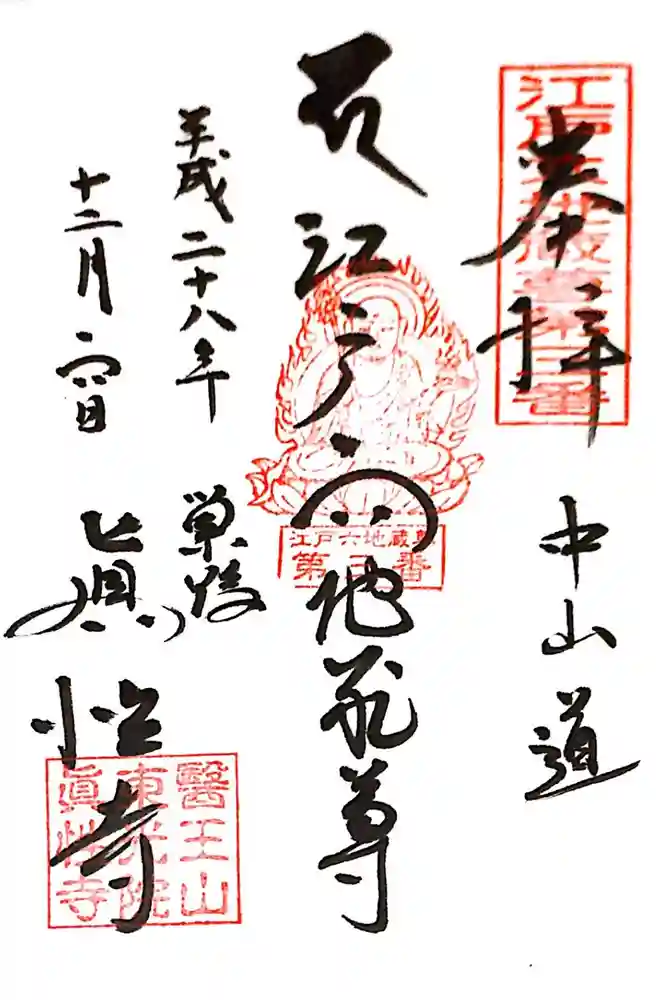 奉拝
中山道
江戸六地蔵尊第三番
江戸六地蔵尊
江戸六地蔵尊
第三番
平成二十八年
巣鴨
十二月六日
眞性寺
醫王山
東光院
眞性寺